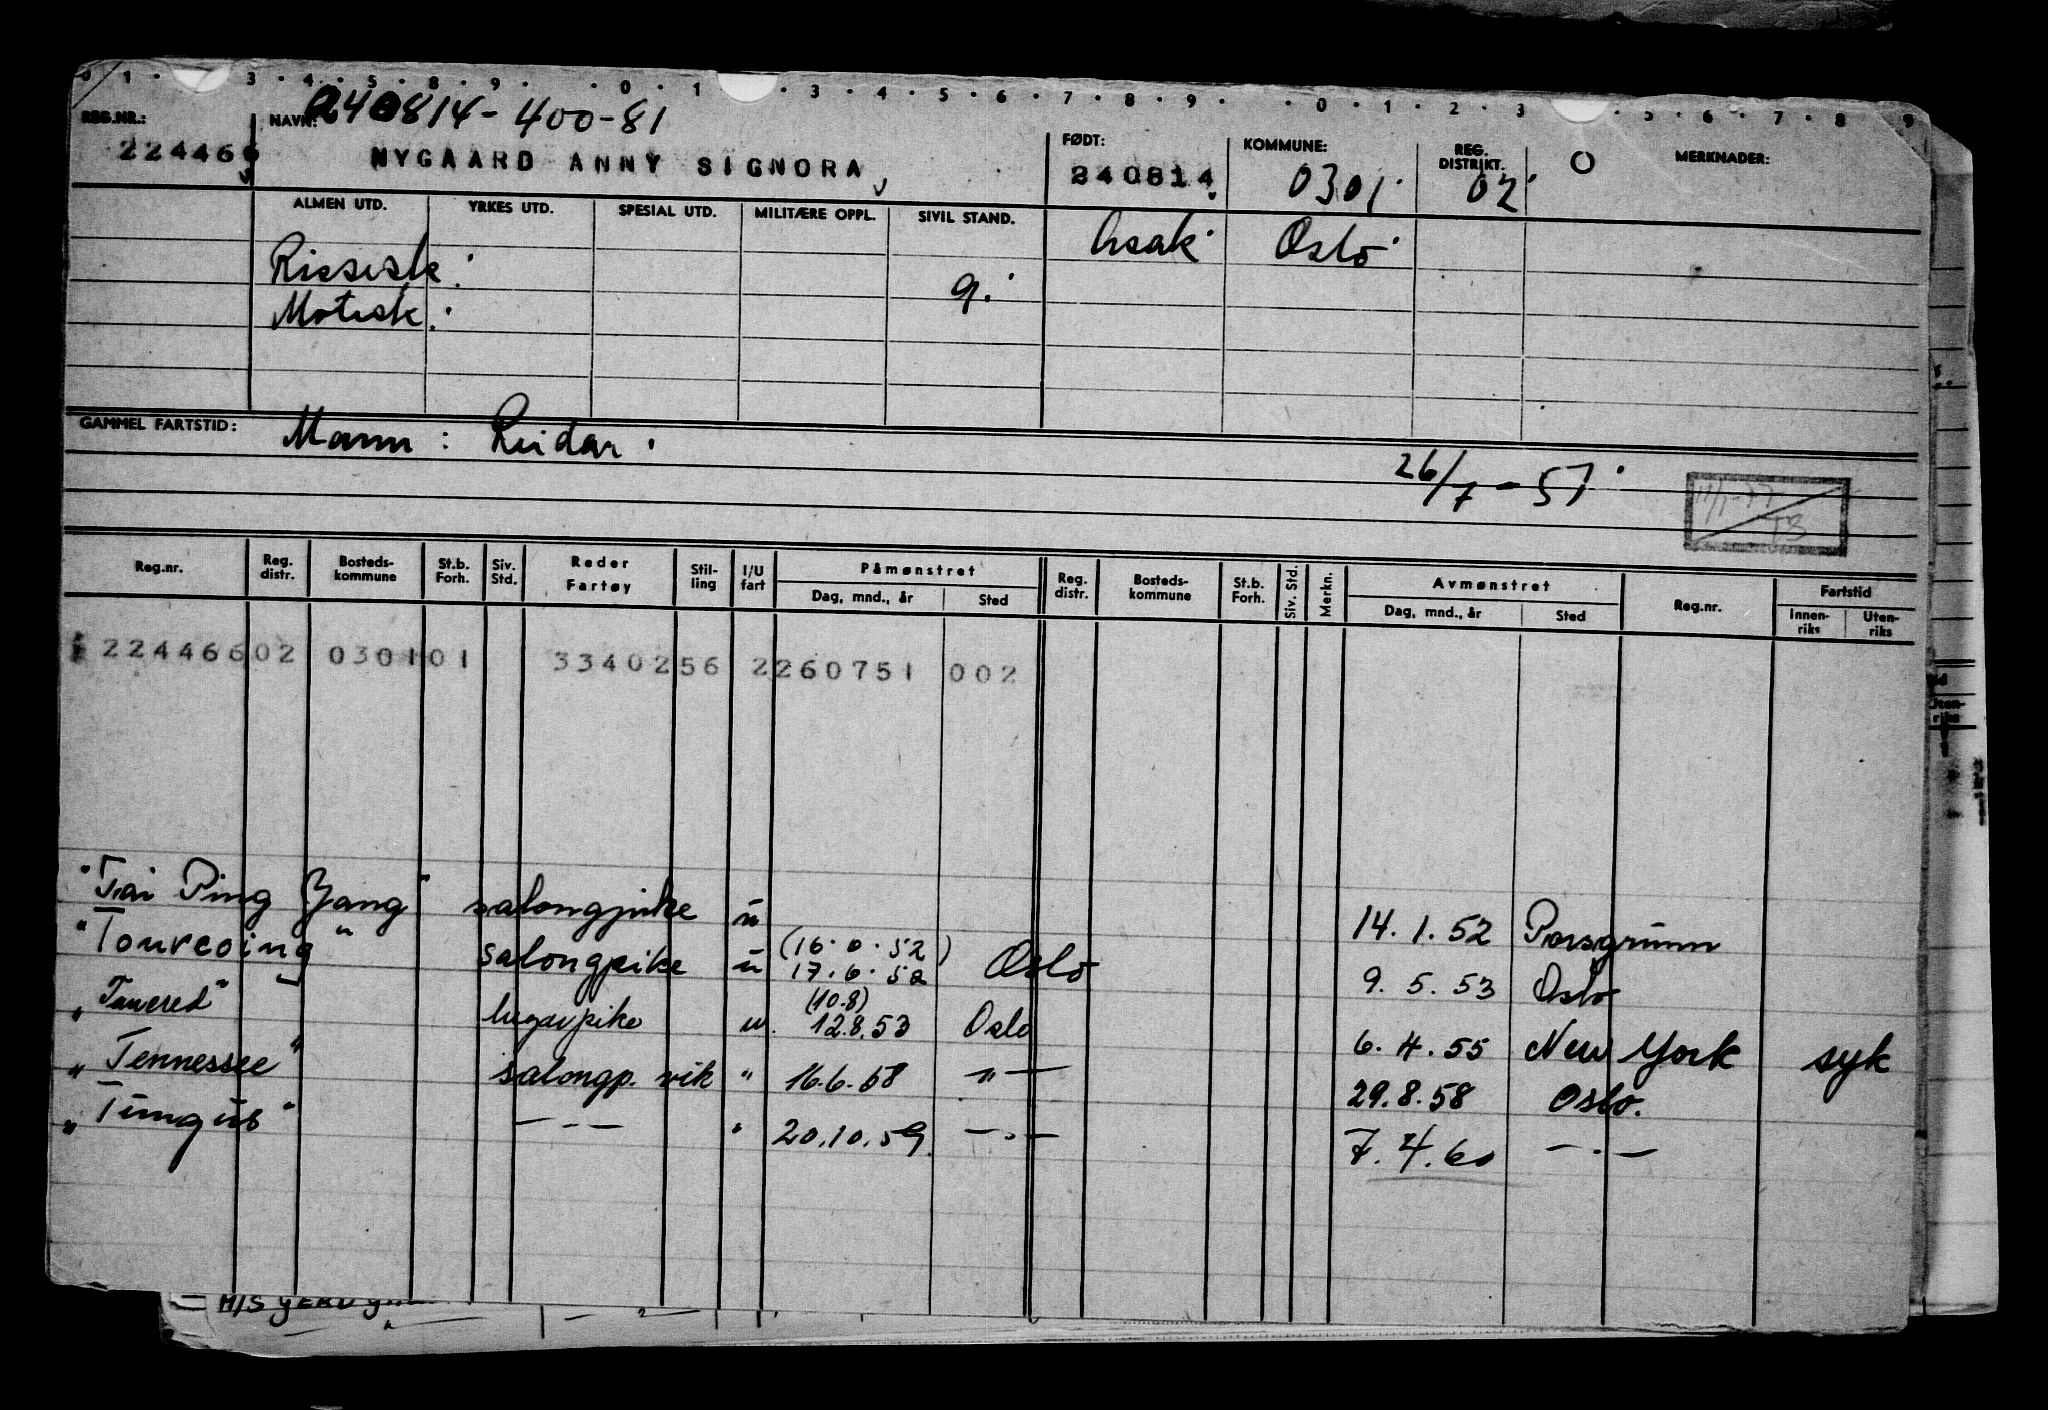 0 1 · 3 · 4 · 5 · 8 · 9 · · 0 · 1 · 3 · 4 · 5 · 6 · 7 · 8 · 9 · · 0 · 1 · 2 · 3 · 5 · 6 · 7 · 8 · 9
240814-400-81
REG.NR.: NAVN: FØDT: KOMMUNE: REG. DISTRIKT. O MERKNADER:
224466 NYGAARD ANNY SIGNORA 240814 0301 02
ALMEN UTD. YRKES UTD. SPESIAL UTD. MILITÆRE OPPL. SIVIL STAND.
Asak Oslo
Rissisk.
g.
Motisk.
GAMMEL FARTSTID: Mann : Reidar.
26/7 - 51
Reg.nr. Reg. distr. Bosteds-kommune St.b. Forh. Siv. Std. Reder Fartøy Stil-ling I/U fart Påmønstret Dag, mnd., år Sted Reg. distr. Bosteds-kommune St.b. Forh. Siv. Std. Merkn. Avmønstret Dag, mnd., år Sted Reg.nr. Fartstid Innen-riks Uten-riks
22446602 030101 3340256 2260751 002
"Tai Ping Yang" salongpike u 14.1.52 Porsgrunn
"Tourcoing" salongpike u (16.6.52) 17.6.52 Oslo 9.5.53 Oslo
"Tancred" lugarpike u. (10.8) 12.8.53 Oslo 6.4.55 New York syk
"Tennessee" salongp. vik " 16.6.58 —"— 29.8.58 Oslo.
"Tungus" —.— " 20.10.59. —.— 7.4.60 —.—
M/S